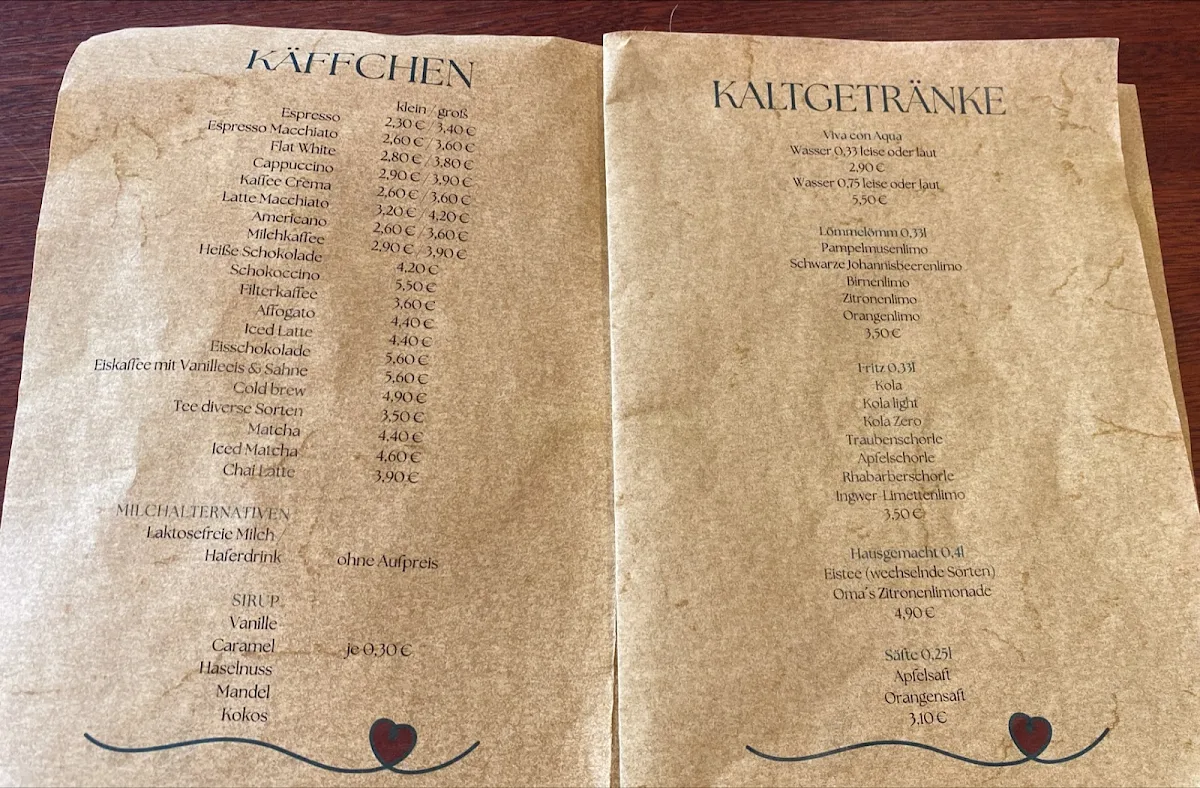 KÄFFCHEN
klein / groß
Espresso 2,30 € / 3,40 €
Espresso Macchiato 2,60 € / 3,60 €
Flat White 2,80 € / 3,80 €
Cappuccino 2,90 € / 3,90 €
Kaffee Crema 2,60 € / 3,60 €
Latte Macchiato 3,20 € / 4,20 €
Americano 2,60 € / 3,60 €
Milchkaffee 2,90 € / 3,90 €
Heiße Schokolade 4,20 €
Schokoccino 5,50 €
Filterkaffee 3,60 €
Affogato 4,40 €
Iced Latte 4,40 €
Eisschokolade 5,60 €
Eiskaffee mit Vanilleeis & Sahne 5,60 €
Cold brew 4,90 €
Tee diverse Sorten 3,50 €
Matcha 4,40 €
Iced Matcha 4,60 €
Chai Latte 3,90 €
MILCHALTERNATIVEN
Laktosefreie Milch /
Haferdrink ohne Aufpreis
SIRUP
Vanille
Caramel je 0,30 €
Haselnuss
Mandel
Kokos
KALTGETRÄNKE
Viva con Aqua
Wasser 0,33 leise oder laut
2,90 €
Wasser 0,75 leise oder laut
5,50 €
Lömmelömm 0,33l
Pampelmusenlimo
Schwarze Johannisbeerenlimo
Birnenlimo
Zitronenlimo
Orangenlimo
3,50 €
Fritz 0,33l
Kola
Kola light
Kola Zero
Traubenschorle
Apfelschorle
Rhabarberschorle
Ingwer-Limettenlimo
3,50 €
Hausgemacht 0,4l
Eistee (wechselnde Sorten)
Oma´s Zitronenlimonade
4,90 €
Säfte 0,25l
Apfelsaft
Orangensaft
3,10 €